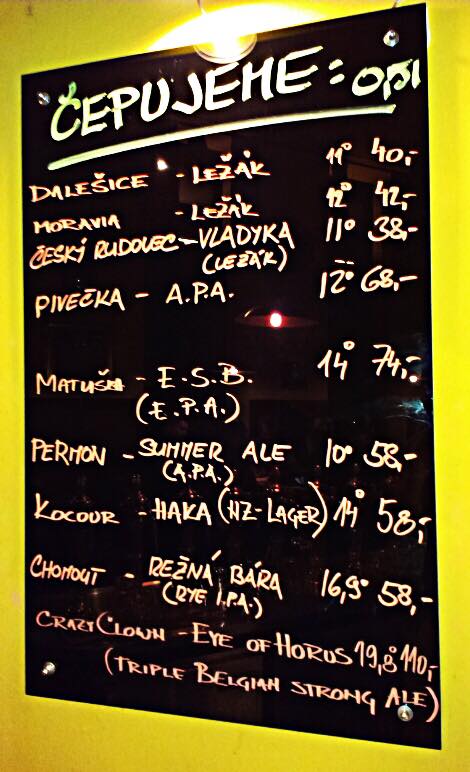 ČEPUJEME: 0,5l
DALEŠICE - LEŽÁK 11° 40,-
MORAVIA - LEŽÁK 12° 42,-
ČESKÝ RUDOLEC - VLADYKA 11° 38,-
(LEŽÁK)
PIVEČKA - A.P.A. 12° 68,-
MATUŠKA - E.S.B. 14° 74,-
(E.P.A.)
PERMON - SUMMER ALE 10° 58,-
(A.P.A.)
KOCOUR - HAKA (NZ-LAGER) 14° 58,-
CHOMOUT - REŽNÁ BÁRA 16,9° 58,-
(RYE I.P.A.)
CRAZY CLOWN - EYE OF HORUS 19,8° 110,-
(TRIPLE BELGIAN STRONG ALE)